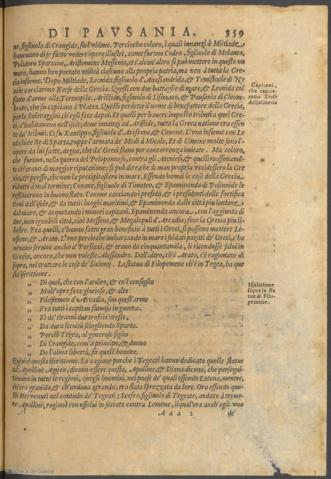 DI PAVSANIA. 359
ne, figliuolo di Craugide, fu l'vltimo. Percioche coloro, i quali innanzi à Miltiade
haueuano di se fatto vedere opere illustri, come furono Codro, figliuolo di Melanto,
Polidoro Spartano, Aristomene Messenio, et s'alcun'altro si può mettere in questo nu
mero, hanno ben portato vtilità ciascuno alla propria patria, ma non à tutta la Gre-
cia insieme. Dopo Miltiade, Leonida figliuolo di Anassandrida, & Temistocle di Neo
cle cacciarono Xerse della Grecia. Questi con due battaglie di mare, & Leonida col
fatto d'arme alle Termopile. Aristide, figliuolo di Lisimaco, & Pausania di Cleom-
broto, che fu capitano à Platea. Questi perdette il nome di benefattore della Grecia,
per le sceleraggini ch'egli fece dapoi. Et quelli per hauere imposto tributi à quei Gre-
ci, c'habitauano nell'isole, doue innanzi ad Aristide, tutta la Greca natione era essen
te da' tributi. Ci fu Xantippo, figliuolo d'Arifrone, & Cimone. L'vno insieme con Le
otichide Re di Sparta, ruppe l'armata de' Medi à Micale. Et di Cimone molte sono l'o-
pere da lui fatte, degne, che da' Greci siano per concorrenza imitate. Ma coloro,
che furono, nella guerra del Peloponneso, contra gli Ateniesi, & quelli massimamente
ch'erano di maggior riputatione; si può dire, che di man propria vccidessero la Gre
cia, & presso, che non la precipitassero in mare. Essendo homai le cose della Grecia
ridotte à mal termine; Conone, figliuolo di Timoteo, & Epaminonda di Polinnide le
restituirono in buono stato. Conone cacciando i presidij, & i presidenti delle fortifica
tioni dall'isole, & da tutti i luoghi maritimi, & Epaminonda dalle città più lontane
dal mare, & acquetando i minori capitani. Epaminonda ancora, con l'aggiunta di
due, non ignobili città, cioè Messene, & Megalopoli d'Arcadia; fece la Grecia più il-
lustre. Fra quelli, c'hanno fatto gran beneficio à tutti i Greci, si possono mettere Leo-
stene, & Arato. L'vno percioche imbarcando in mare i soldati pagati de' Greci, c'ha
ueuano seruito anche a' Persiani, & erano da cinquantamila, li ricondusse salui in
Grecia, ancora, che non volesse Alessandro. Dall'altro, ch'è Arato, s'è ragionato di
sopra, nel trattare le cose de' Sicionij. La statua di Filopemene ch'è in Tegea, ha que
sta iscrittione.
„ Di quel, che con l'ardire, & co'l consiglio
„ Molt'opre fece gloriose, & alte
„ Filopemen d'Arcadia, son quest'arme
„ Fra tutti i capitan famoso in guerra.
„ E i de' tiranni due trofei s'eresse,
„ Da dura seruitù sciogliendo Sparta.
„ Perch'Tegea, al generoso figlio
„ Di Craugide, com'à principe, & donno
„ De l'alma libertà, fè questi honore.
Quiui è questa iscrittione. La cagione perche i Tegeati hanno dedicato quelle statue
ad Apolline Agieo, dicono essere questa, Apolline, & Diana dicono, che persegui-
tauano in tutte le regioni, quegli huomini, nel paese de' quali essendo Latona, mentre,
ch'era grauida, & ch'andaua errando; era stata sprezzata da loro. Ora essendo que-
sti Dei venuti nel contado de' Tegeati; Scefro, figliuolo di Tegeate, andato à trouare
Apolline, ragionò con esso lui in secreto contra Lemone, il qual'era anch'egli vno
Aaa 2 de'
Capitani,
che caccia-
rono Xerse
della Grecia
Iscrittione
sopra la sta
tua di Filo-
pemene.